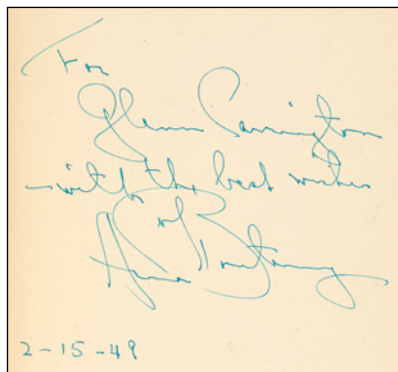 For
Glenn Carrington
with the best wishes
of
Arna Bontemps
2-15-49